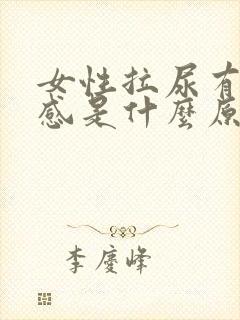 女性拉尿有
感是什麼原
李慶峰